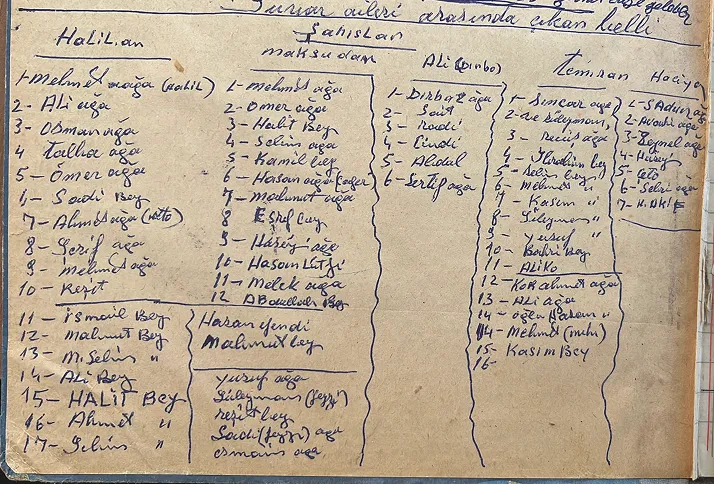 aileri arasında çıkan belli
Şahısları
Halilan
1- Mehmet ağa (Halil)
2- Ali ağa
3- Osman ağa
4 Talha ağa
5- Ömer ağa
6- Sadi Bey
7- Ahmet ağa
8- Şerif ağa
9- Mehmet ağa
10- Reşit
11- İsmail Bey
12- Mahmut Bey
13- M. Selim "
14- Ali Bey
15- HALİT Bey
16- Ahmet "
17- Selim "
maksudan
1- Mehmet ağa
2- Ömer ağa
3- Halit Bey
4- Selim ağa
5- Kamil bey
6- Hasan ağa
7- Mahmut ağa
8 Eşref bey
9- Hüseyin ağa
10- Hasan Lütfi
11- Melek ağa
12 ABdullah Bey
Hasan efendi
Mahmut bey
yusuf ağa
Süleyman (fezzi)
reşit bey
Sadi (fezzi) ağa
osman ağa
Ali
1- Dırbaz ağa
2- Sait
3-
4- Cindi
5- Abdal
6- Sertip ağa
Temiran
1- Sincar ağa
2- ve Süleyman,
3- ağa
4- İbrahim bey
5- Selim bey
6- Mehmet "
7- Kasım "
8- Süleyman "
9- yusuf "
10- Bahri Bey
11- ALİKO
12- Kor ahmet ağa
13- ALi ağa
14- oğlu Hasan "
14- Mehmet
15- Kasım Bey
16-
1- ağa
2- ağa
3- Zeynel ağa
4- Hüseyin
5-
6- Sebri ağa
7-